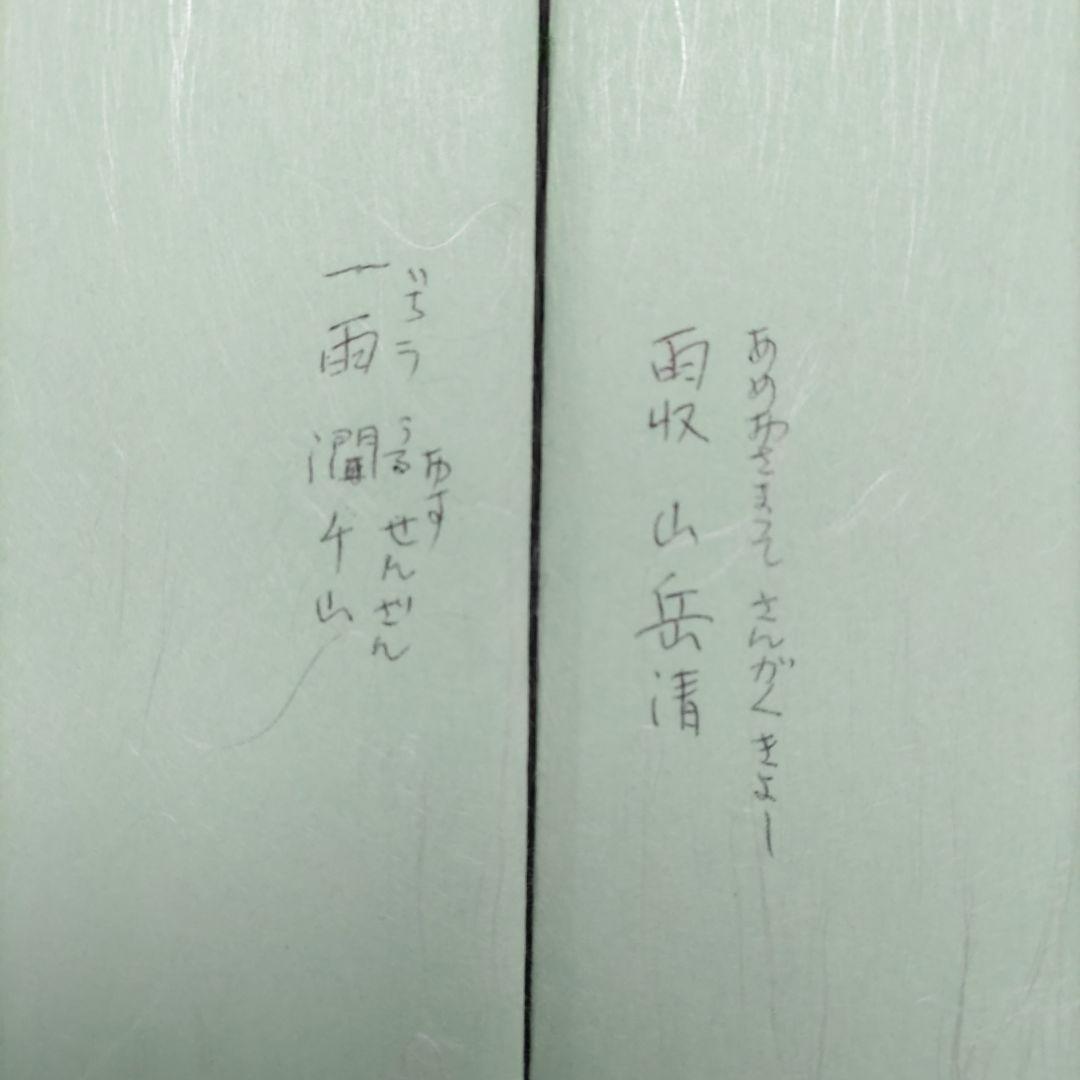 あめおさまって さんがくきよー
雨収 山岳清
いちう うるおす せんざん
一雨 潤千山